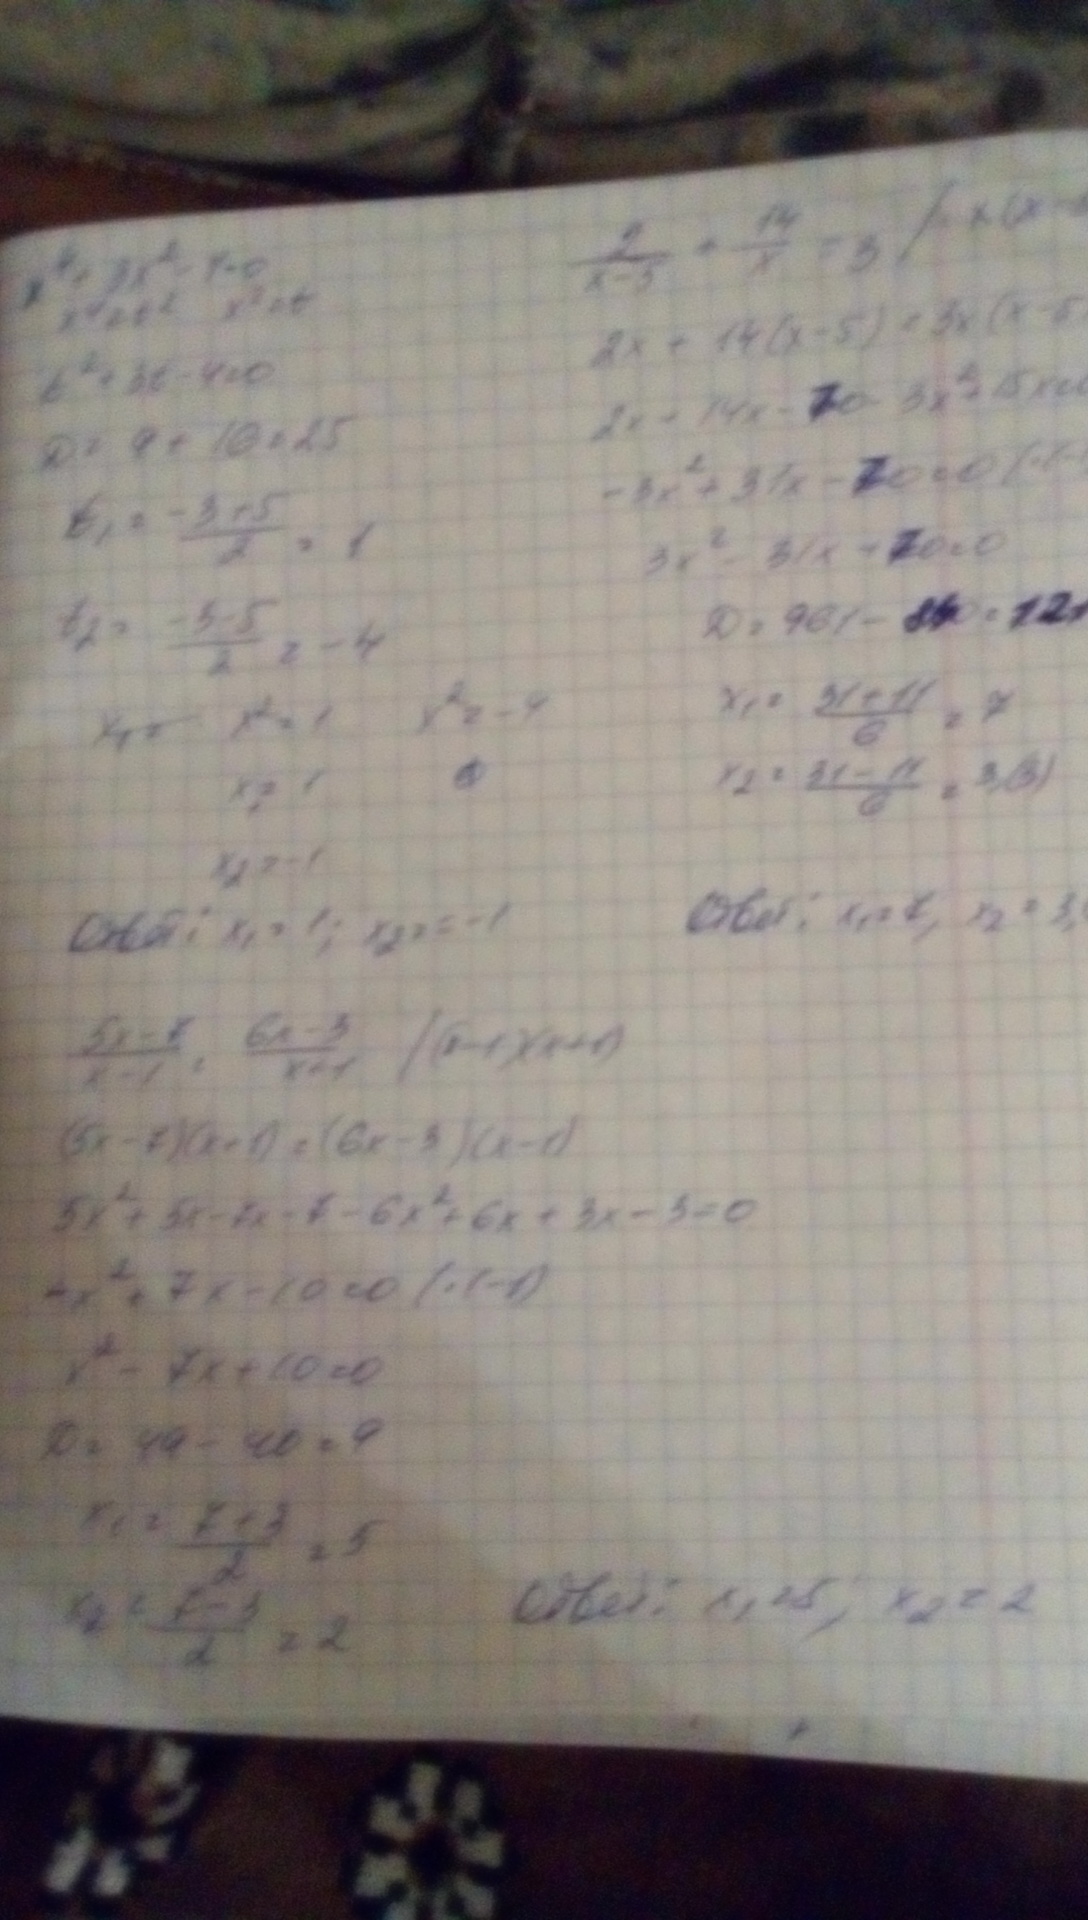 x⁴ + 3x² - 4=0
x⁴=t² x²=t
t² + 3t - 4=0
D = 9 + 16 = 25
t₁ = (-3+5)/2 = 1
t₂ = (-3-5)/2 = -4
x₁ = x² = 1 x² = -4
x = 1 ∅
x₂ = -1
Ответ: x₁ = 1; x₂ = = -1
2/(x-5) + 14/x = 3 / · x(x-
2x + 14(x-5) = 3x(x-5
2x + 14x - 70 - 3x² + 15x=
-3x² + 31x - 70=0 / ·(-
3x² - 31x + 70=0
D = 961 - 840 = 12
x₁ = (31+11)/6 = 7
x₂ = (31-11)/6 = 3,(3)
Ответ: x₁=7; x₂ = 3,
(5x-7)/(x-1) = (6x-3)/(x+1) / (x-1)(x+1)
(5x-7)(x+1) = (6x-3)(x-1)
5x² + 5x - 7x - 7 - 6x² + 6x + 3x - 3=0
-x² + 7x - 10=0 / ·(-1)
x² - 7x + 10=0
D = 49 - 40 = 9
x₁ = (7+3)/2 = 5
x₂ = (7-3)/2 = 2
Ответ: x₁=5; x₂ = 2